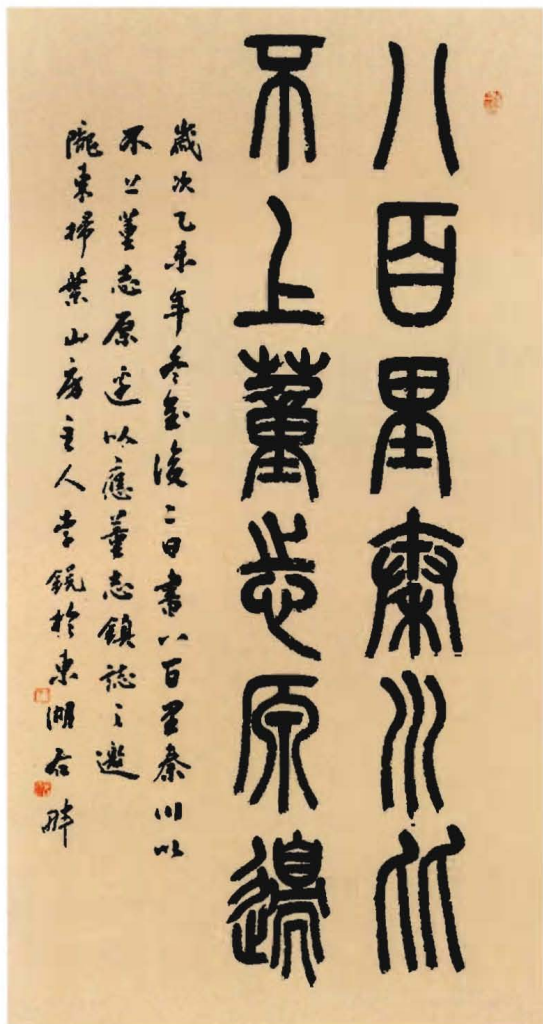 八百里秦川比
不上董志原邊
歲次乙未年冬至後二日書八百里秦川比
不上董志原邊以應董志鎮誌之邀
隴東掃葉山房主人李銳於東湖右畔